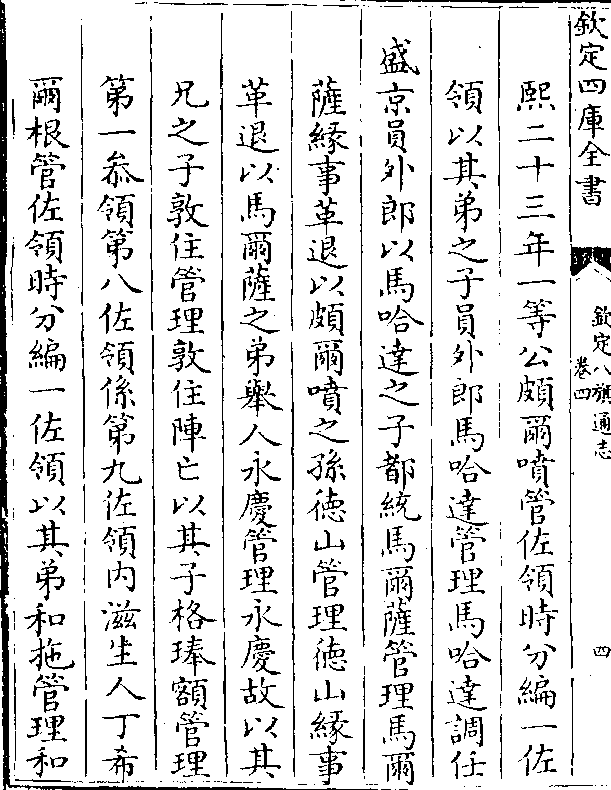 欽定四庫全書
欽定八旗通志
卷四
四
熙二十三年一等公頗爾噴管佐領時分編一佐
領以其弟之子員外郎馬哈達管理馬哈達調任
盛京員外郎以馬哈達之子都統馬爾薩管理馬爾
薩緣事革退以頗爾噴之孫德山管理德山緣事
革退以馬爾薩之弟舉人永慶管理永慶故以其
兄之子敦住管理敦住陣亡以其子格琫額管理
第一叅領第八佐領係第九佐領内滋生人丁希
爾根管佐領時分編一佐領以其弟和拖管理和